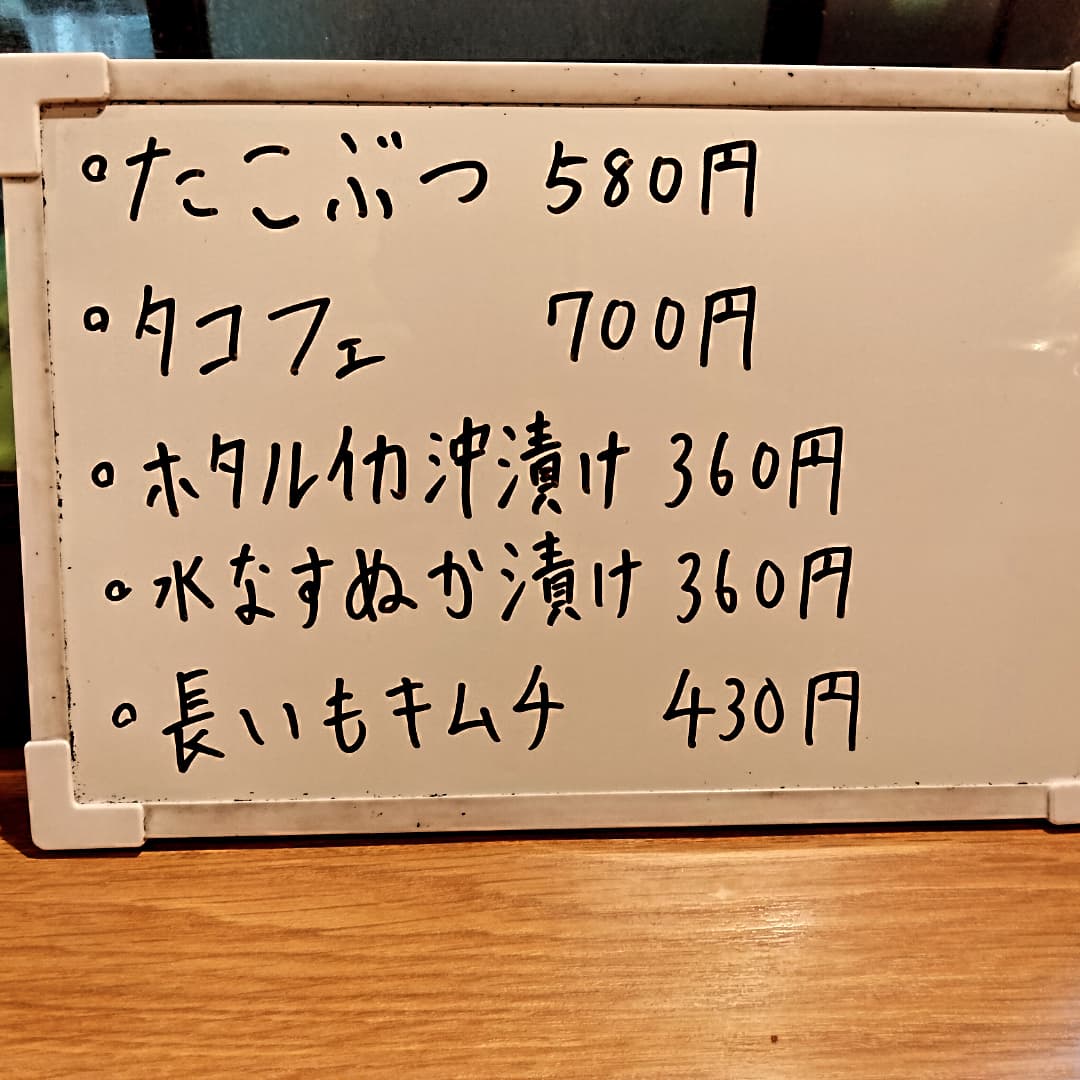 ○たこぶつ 580円
○タコフェ 700円
○ホタルイカ沖漬け 360円
○水なすぬか漬け 360円
○長いもキムチ 430円